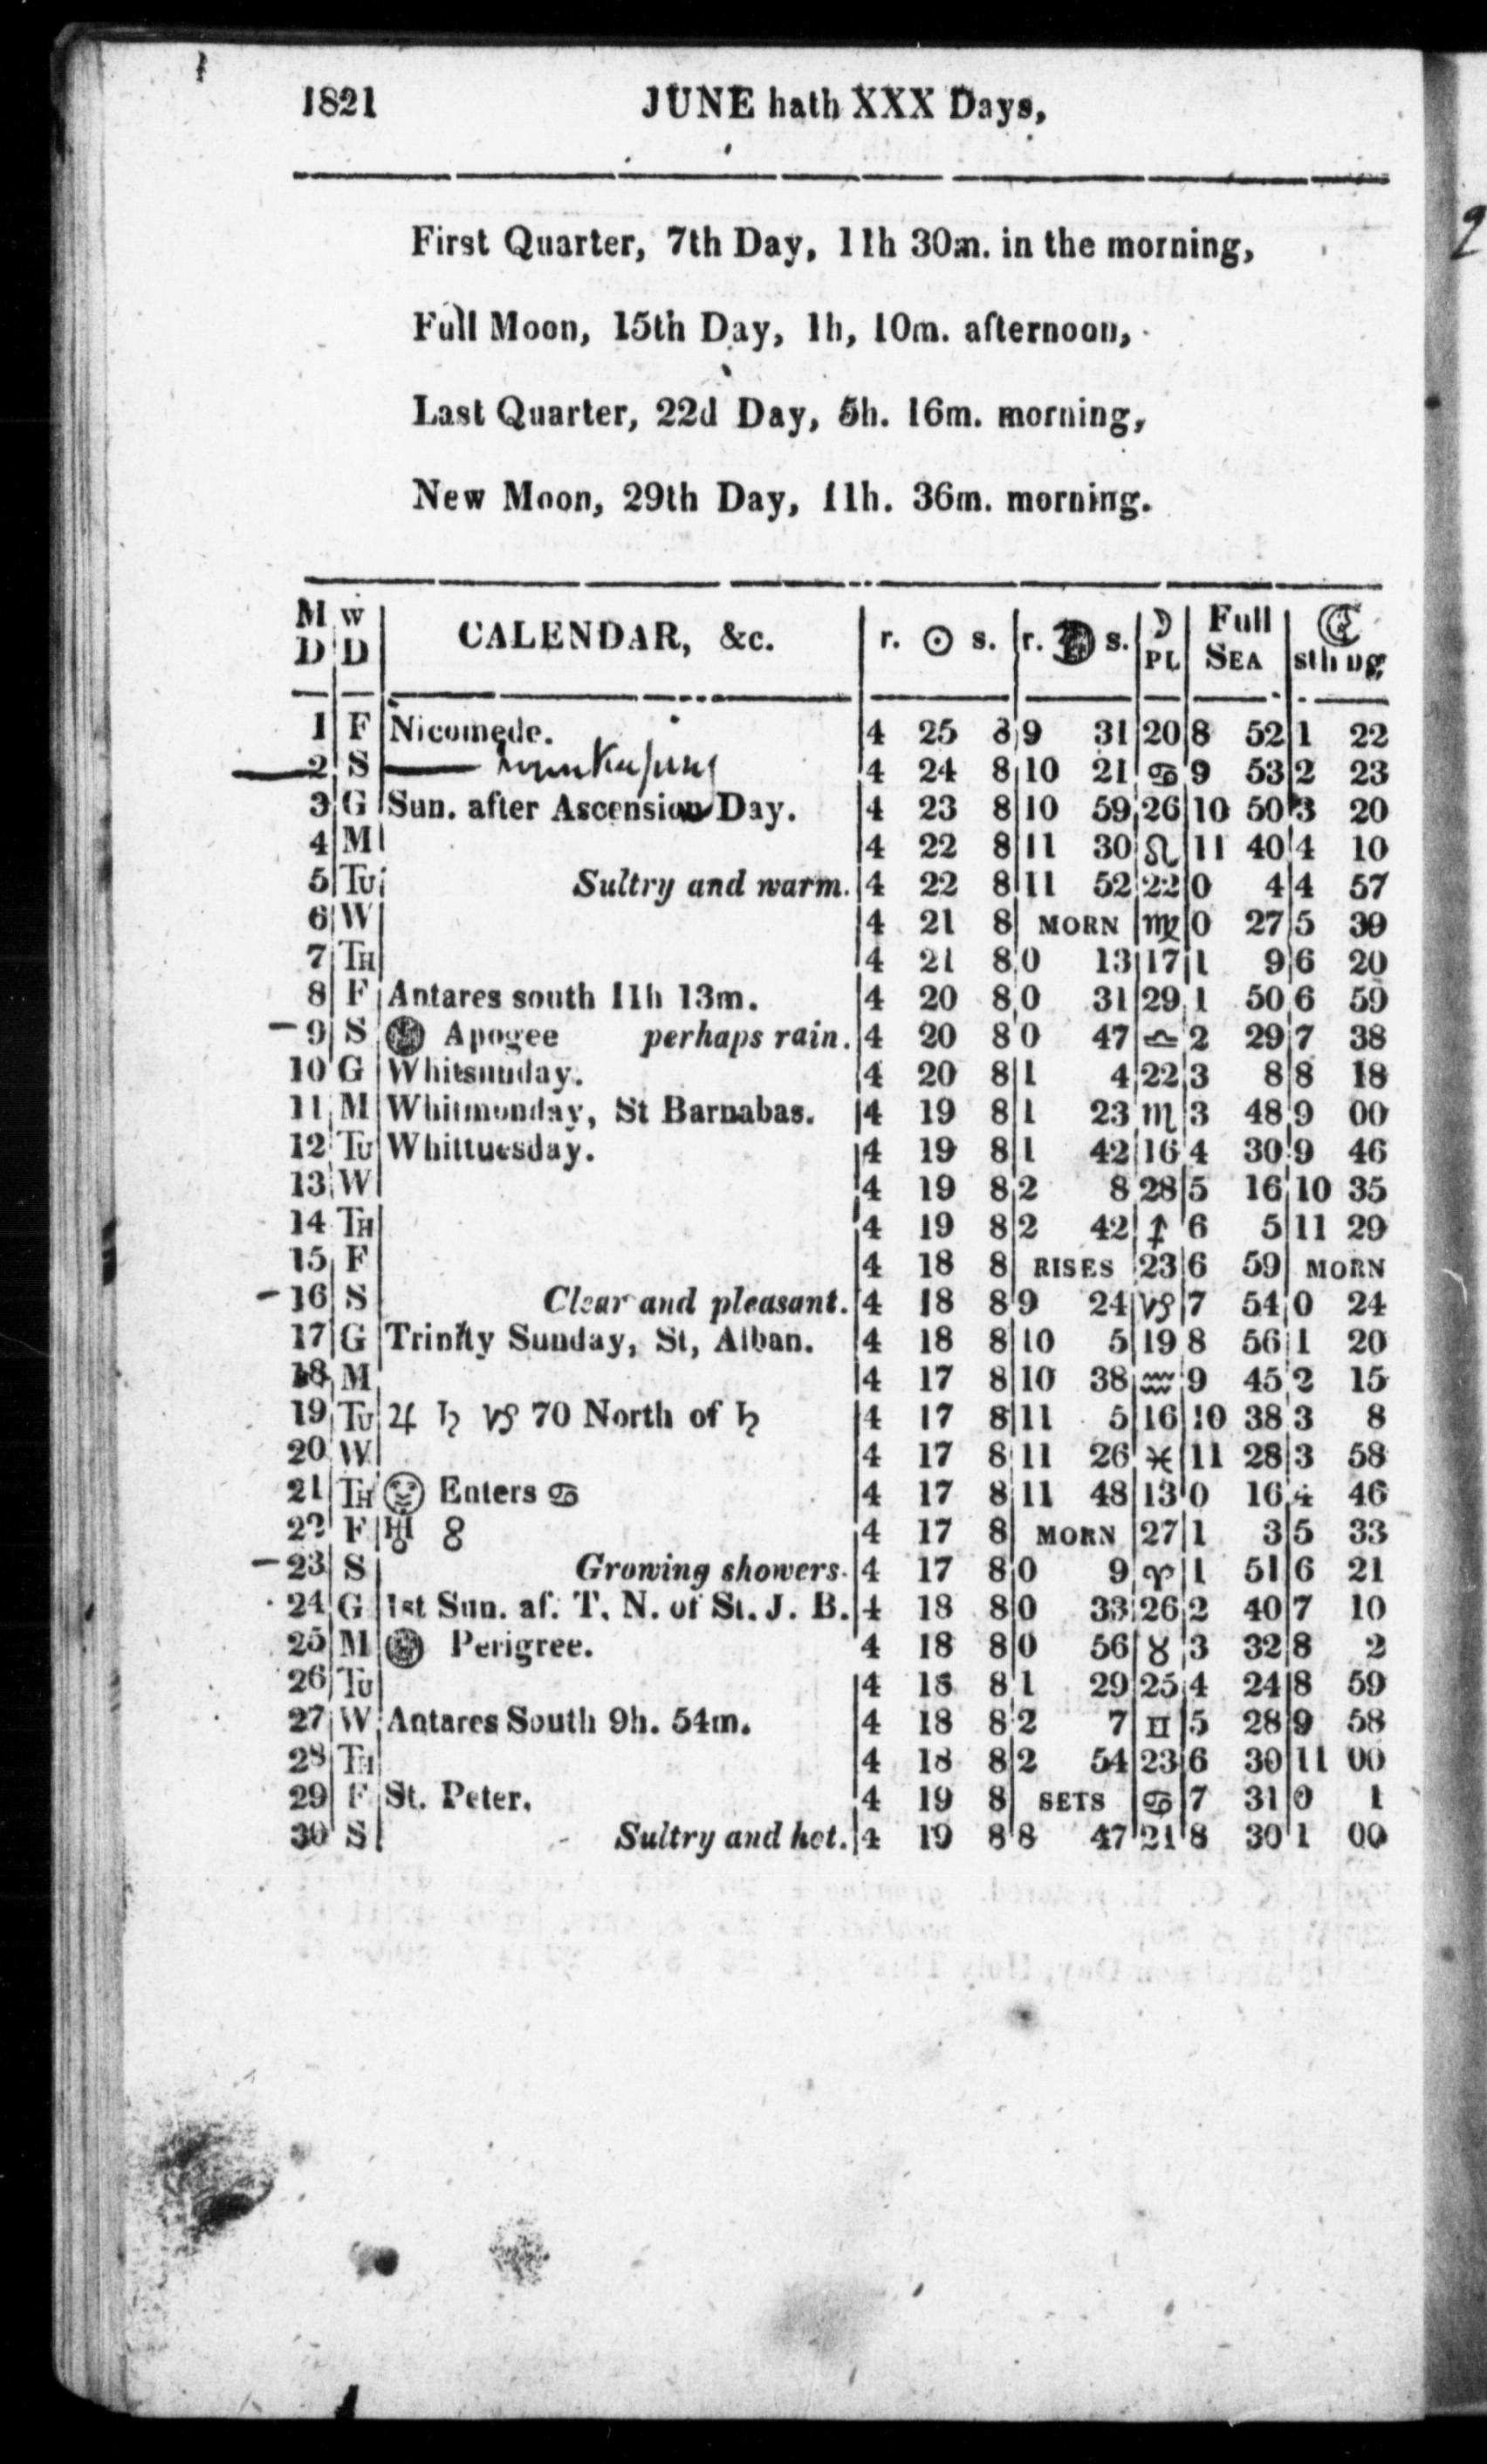 1821 JUNE hath XXX Days,
First Quarter, 7th Day, 11h 30m. in the morning,
Full Moon, 15th Day, 1h, 10m. afternoon,
Last Quarter, 22d Day, 5h. 16m. morning,
New Moon, 29th Day, 11h. 36m. morning.
M D W D CALENDAR, &c. r. ☉ s. r. s. ☽ PL Full SEA ☾ sth ng
1 F Nicomede. 4 25 8 9 31 20 8 52 1 22
2 S 4 24 8 10 21 ♋ 9 53 2 23
3 G Sun. after Ascension Day. 4 23 8 10 59 26 10 50 3 20
4 M 4 22 8 11 30 ♌ 11 40 4 10
5 TU Sultry and warm. 4 22 8 11 52 22 0 4 4 57
6 W 4 21 8 MORN ♍ 0 27 5 39
7 TH 4 21 8 0 13 17 1 9 6 20
8 F Antares south 11h 13m. 4 20 8 0 31 29 1 50 6 59
9 S Apogee perhaps rain. 4 20 8 0 47 ♎ 2 29 7 38
10 G Whitsunday. 4 20 8 1 4 22 3 8 8 18
11 M Whitmonday, St Barnabas. 4 19 8 1 23 ♏ 3 48 9 00
12 TU Whittuesday. 4 19 8 1 42 16 4 30 9 46
13 W 4 19 8 2 8 28 5 16 10 35
14 TH 4 19 8 2 42 ♐ 6 5 11 29
15 F 4 18 8 RISES 23 6 59 MORN
16 S Clear and pleasant. 4 18 8 9 24 ♑ 7 54 0 24
17 G Trinity Sunday, St, Alban. 4 18 8 10 5 19 8 56 1 20
18 M 4 17 8 10 38 ♒ 9 45 2 15
19 TU ♃ ♄ ♑ 70 North of ♄ 4 17 8 11 5 16 10 38 3 8
20 W 4 17 8 11 26 ♓ 11 28 3 58
21 TH Enters ♋ 4 17 8 11 48 13 0 16 4 46
22 F ♅ 8 4 17 8 MORN 27 1 3 5 33
23 S Growing showers. 4 17 8 0 9 ♈ 1 51 6 21
24 G 1st Sun. af. T. N. of St. J. B. 4 18 8 0 33 26 2 40 7 10
25 M Perigree. 4 18 8 0 56 ♉ 3 32 8 2
26 TU 4 18 8 1 29 25 4 24 8 59
27 W Antares South 9h. 54m. 4 18 8 2 7 ♊ 5 28 9 58
28 TH 4 18 8 2 54 23 6 30 11 00
29 F St. Peter. 4 19 8 SETS ♋ 7 31 0 1
30 S Sultry and hot. 4 19 8 8 47 21 8 30 1 00